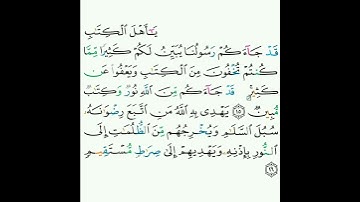 يَٰٓأَهْلَ ٱلْكِتَٰبِ
قَدْ جَآءَكُمْ رَسُولُنَا يُبَيِّنُ لَكُمْ كَثِيرًا مِّمَّا
كُنتُمْ تُخْفُونَ مِنَ ٱلْكِتَٰبِ وَيَعْفُوا۟ عَن
كَثِيرٍ ۚ قَدْ جَآءَكُم مِّنَ ٱللَّهِ نُورٌ وَكِتَٰبٌ
مُّبِينٌ ١٥ يَهْدِى بِهِ ٱللَّهُ مَنِ ٱتَّبَعَ رِضْوَٰنَهُۥ
سُبُلَ ٱلسَّلَٰمِ وَيُخْرِجُهُم مِّنَ ٱلظُّلُمَٰتِ إِلَى
ٱلنُّورِ بِإِذْنِهِۦ وَيَهْدِيهِمْ إِلَىٰ صِرَٰطٍ مُّسْتَقِيمٍ
١٦